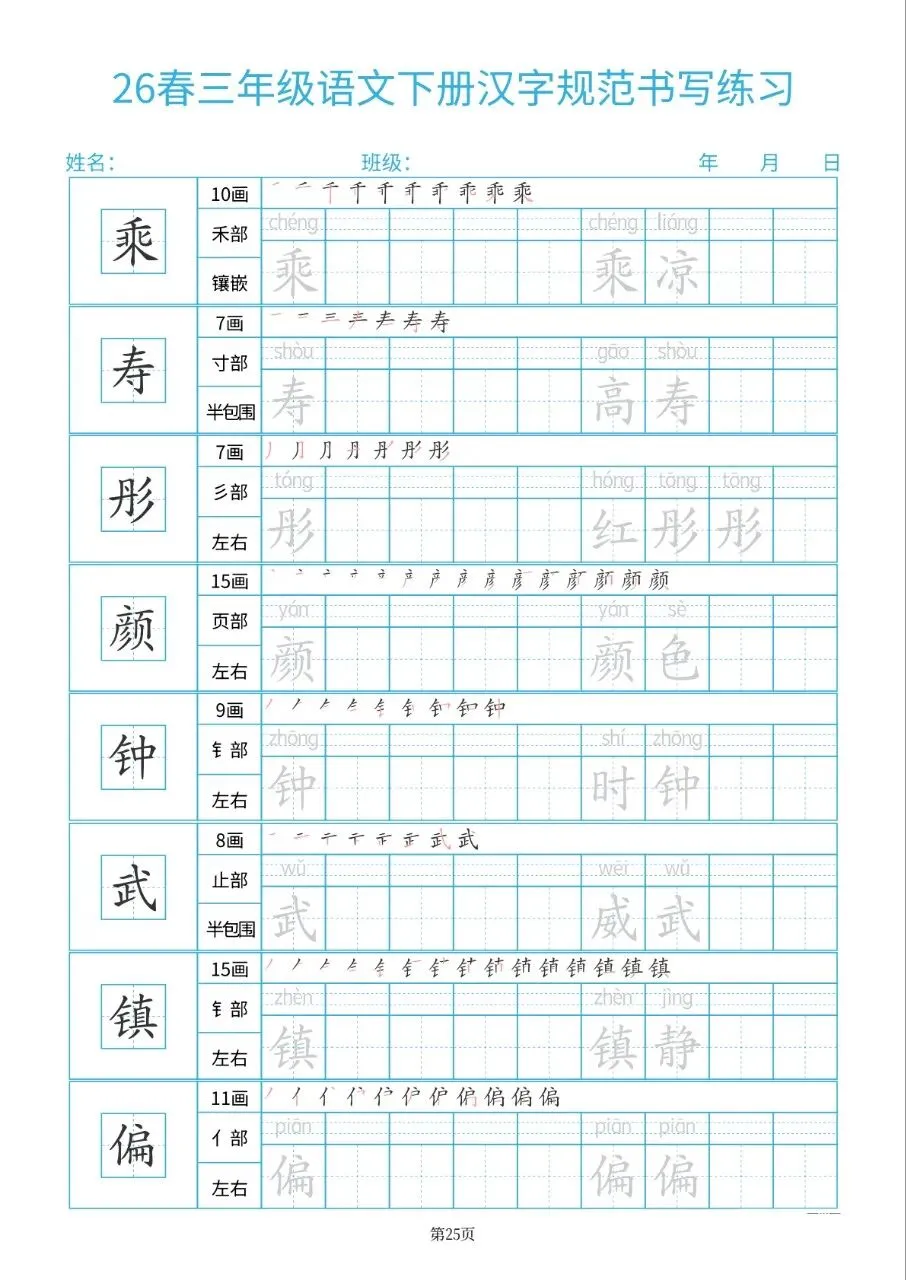 26春三年级语文下册汉字规范书写练习
姓名: 班级: 年 月 日
乘
10画
禾部
镶嵌
chéng chéng liáng
乘 乘 凉
寿
7画
寸部
半包围
shòu gāo shòu
寿 高 寿
彤
7画
彡部
左右
tóng hóng tōng tōng
彤 红 彤 彤
颜
15画
页部
左右
yán yán sè
颜 颜 色
钟
9画
钅部
左右
zhōng shí zhōng
钟 时 钟
武
8画
止部
半包围
wǔ wēi wǔ
武 威 武
镇
15画
钅部
左右
zhèn zhèn jìng
镇 镇 静
偏
11画
亻部
左右
piān piān piān
偏 偏 偏
第25页